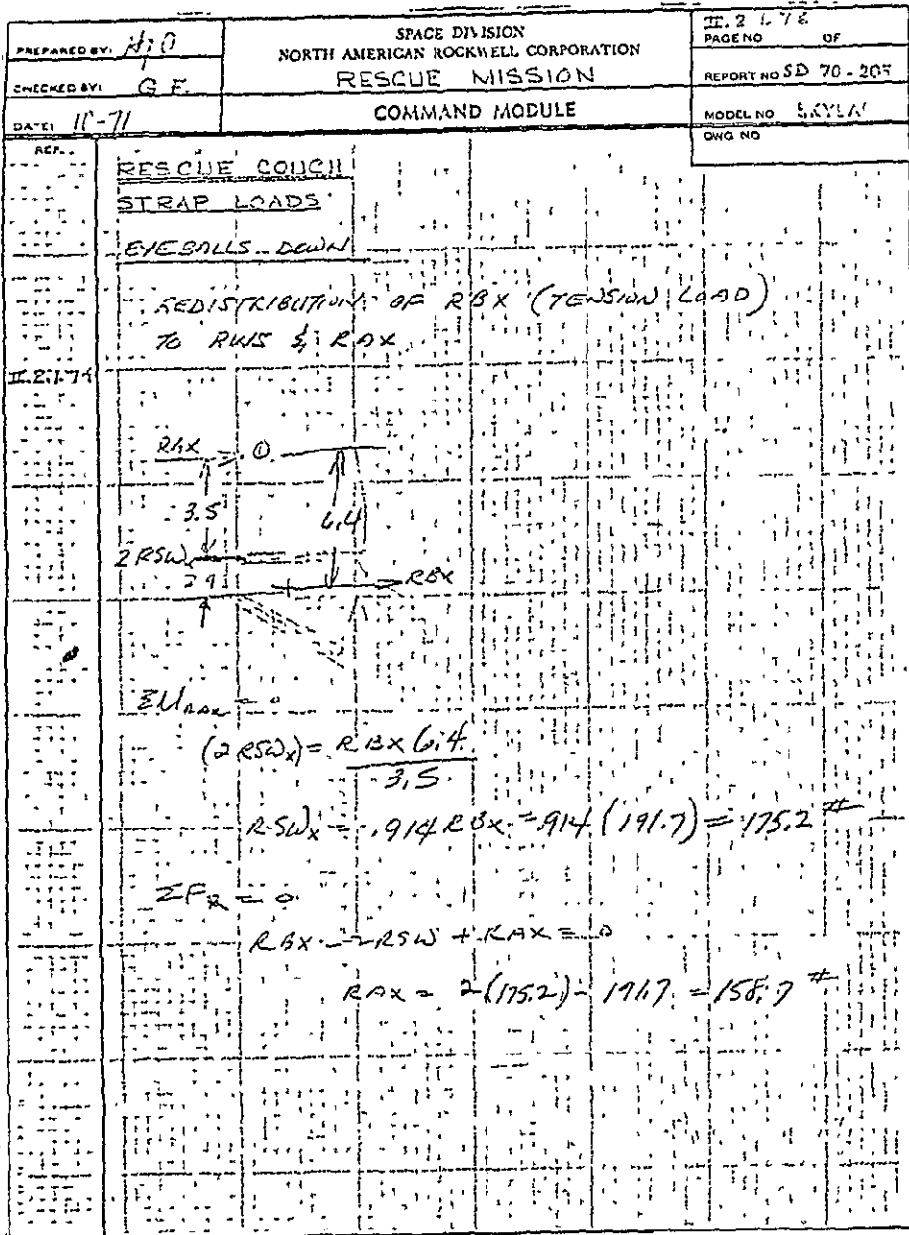 PREPARED BY:
SPACE DIVISION
NORTH AMERICAN ROCKWELL CORPORATION
RESCUE MISSION
COMMAND MODULE
PAGE NO OF
REPORT NO SD 70-205
MODEL NO
DWG NO
CHECKED BY: G.F.
DATE: 11-71
REF.
RESCUE COUCH
STRAP LOADS
EYEBALLS DOWN
REDISTRIBUTION OF RBX (TENSION LOAD)
TO RWS & RAX
II.2.1.74
RAX
3.5
6.4
2RSW
2.9
RBX
ΣM = 0
(2RSWx) = RBX 6.4
3.5
RSWx = .914 RBX = .914 (191.7) = 175.2 #
ΣFx = 0
RBX - 2RSW + RAX = 0
RAX = 2(175.2) - 191.7 = 158.7 #